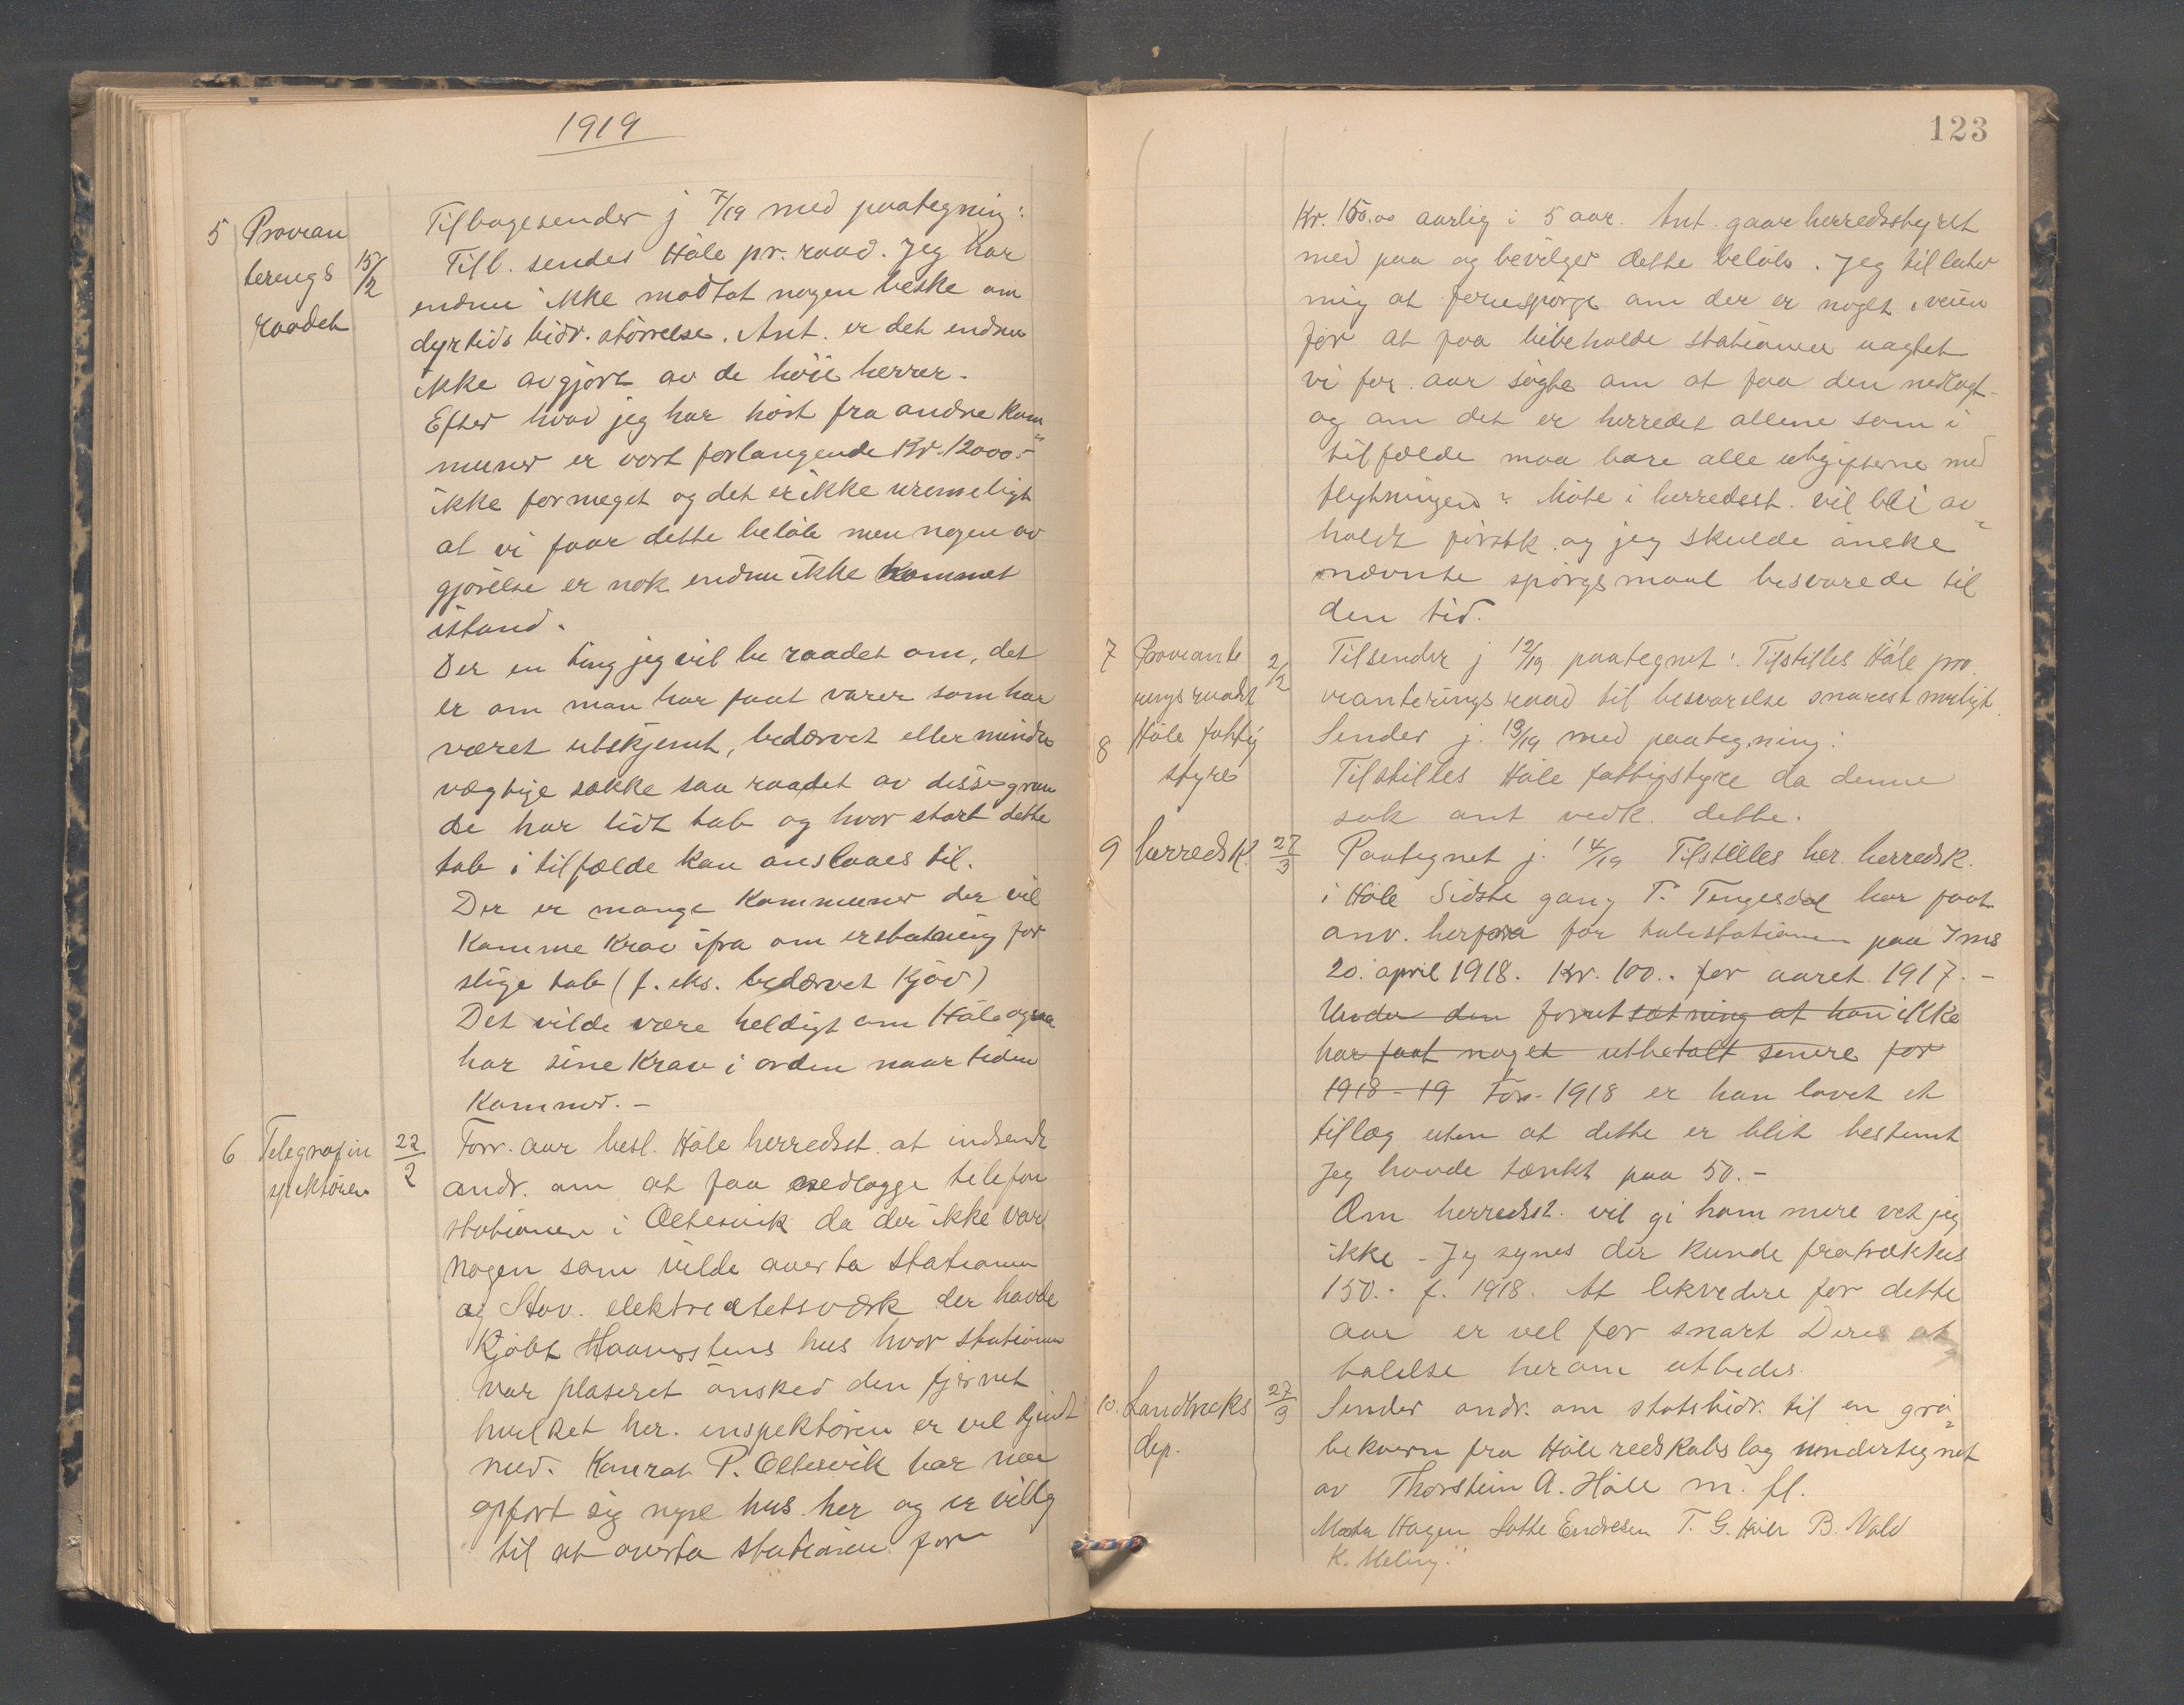 1919
5 Provian
terings 15/2
raadet
Tilbagesender j 7/19 med paategning:
Tilb. sendes Höle pr. raad. Jeg har
endnu ikke modtat nogen beske om
dyrtids bidr. störrelse. Ant. er det endnu
ikke avgjort av de höie herrer.
Efter hvad jeg har hört fra andre kom
muner er vort forlangende Kr. 12000.-
ikke formeget og det er ikke urimeligt
at vi faar dette belöb men nogen av
gjörelse er nok endnu ikke kommet
istand.
Der en ting jeg vil be raadet om, det
er om man har faat varer som har
været utskjemt, bedærvet eller mindre
vægtige sække saa raadet av disse grun
de har lidt tab og hvor stort dette
tab i tilfælde kan anslaaes til.
Der er mange kommuner der vil
komme krav ifra om erstatning for
slige tab (f. eks. bedærvet kjöd)
Det vilde være heldigt om Höle ogsaa
har sine krav i orden naar tiden
kommer. -
6 Telegrafin 22/2
spektören
Forr. aar besl. Höle herredsst. at indsende
andr. om at faa nedlagge telefon
stationen i Oltesvik da der ikke var
nogen som vilde overta stationen
og Stav. elektrecitetsværk der havde
kjöbt Haaverstens hus hvor stationen
var plaseret önsked den fjernet
hvilket her. inspektören er vel kjendt
med. Konrad P. Oltesvik har nu
opfört sig nyt hus her og er villig
til at overta stationen for
123
Kr. 150.00 aarlig i 5 aar. Ant. gaar herredsstyret
med paa og bevilger dette belöb. Jeg tillater
mig at forespörge om der er noget iveien
for at faa bibeholde stationen uagtet
vi for. aar sögte om at faa den nedlagt.
og om det er herredet allene som i
tilfælde maa bare alle utgifterne med
flytningen? Möte i herredsst. vil bli av
holdt förstk. og jeg skulde önske
nævnte spörgsmaal besvarede til
den tid.
7 Proviante 2/2
ringsraadet
Tilsender j 12/19 paategnet: Tilstilles Höle pro
vianteringsraad til besvarelse snarest muligt.
8 Höle fattig
styre
Sender j. 13/19 med paategning:
Tilstilles Höle fattigstyre da denne
sak ant vedk. dette.
9 herredsk. 27/3
Paategnet j. 14/19 Tilstilles her. herredsk.
i Höle Sidste gang T. Tengesdal har faat
anv. herfra for talestationen paa Ims
20. april 1918. Kr. 100.. for aaret 1917. -
Under den forutsætning at han ikke
har faat noget utbetalt senere for
1918 - 19 For 1918 er han lovet et
tillæg uten at dette er blit bestemt
Jeg havde tænkt paa 50.-
Om herredsst. vil gi ham mere vet jeg
ikke - Jeg synes der kunde fratrækkes
150.- f. 1918. At likvedere for dette
aar er vel for snart Deres ut
talelse herom utbedes.
10. Landbruks 27/3
dep.
Sender andr. om statsbidr. til en grö
bekvern fra Höle redskabslag undertegnet
av Thorstein A. Höle m. fl.
Hagen Endresen T. G. B. Vald
K. Meling.